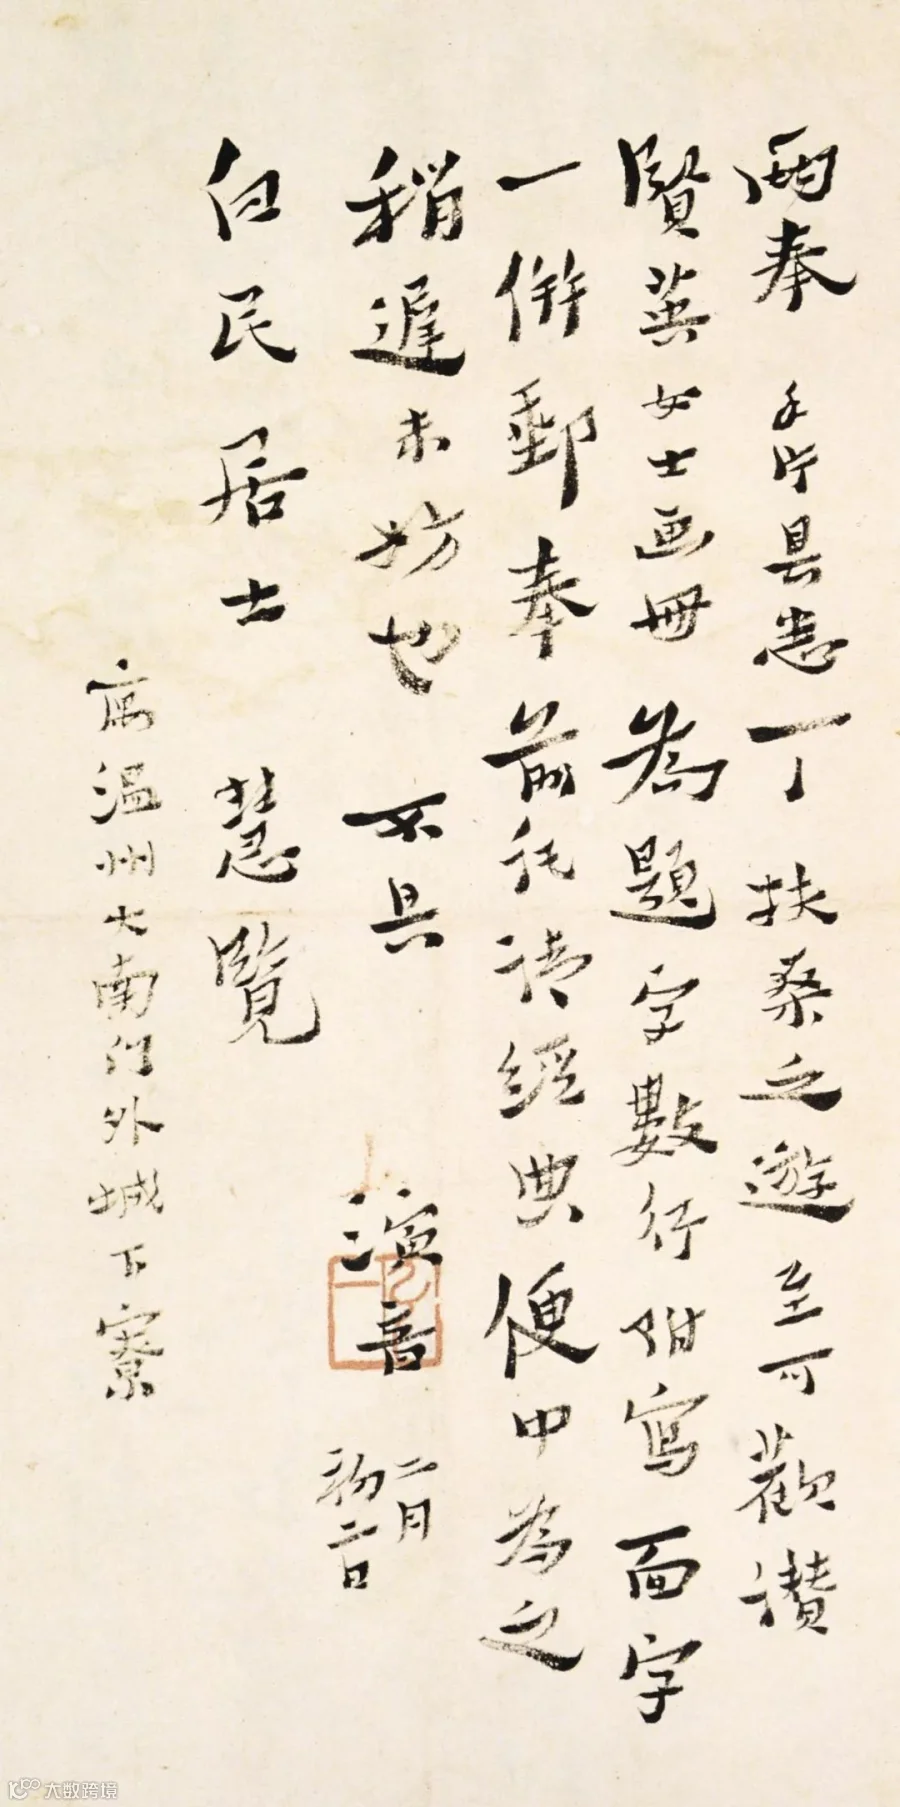 兩奉 手片具悉一一扶桑之遊至可歡讚
賢英女士画冊為題字數行附寫面字
一併郵奉前託請經典便中為之
稍遲未妨也 不具 演音 二月初二日
白民居士 慧覽
寓温州大南门外城下寮
大数跨境